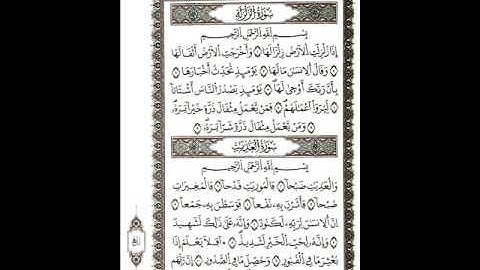 سورة الزلزلة
بسم الله الرحمن الرحيم
إذا زلزلت الأرض زلزالها ۝ وأخرجت الأرض أثقالها
۝ وقال الإنسن ما لها ۝ يومئذ تحدث أخبارها ۝
بأن ربك أوحى لها ۝ يومئذ يصدر الناس أشتاتا
ليروا أعملهم ۝ فمن يعمل مثقال ذرة خيرا يره ۝
ومن يعمل مثقال ذرة شرا يره ۝
سورة العديت
بسم الله الرحمن الرحيم
والعديت ضبحا ۝ فالموريت قدحا ۝ فالمغيرت
صبحا ۝ فأثرن به نقعا ۝ فوسطن به جمعا ۝
إن الإنسن لربه لكنود ۝ وإنه على ذلك لشهيد
۝ وإنه لحب الخير لشديد ۝ أفلا يعلم إذا
بعثر ما في القبور ۝ وحصل ما في الصدور ۝ إن ربهم